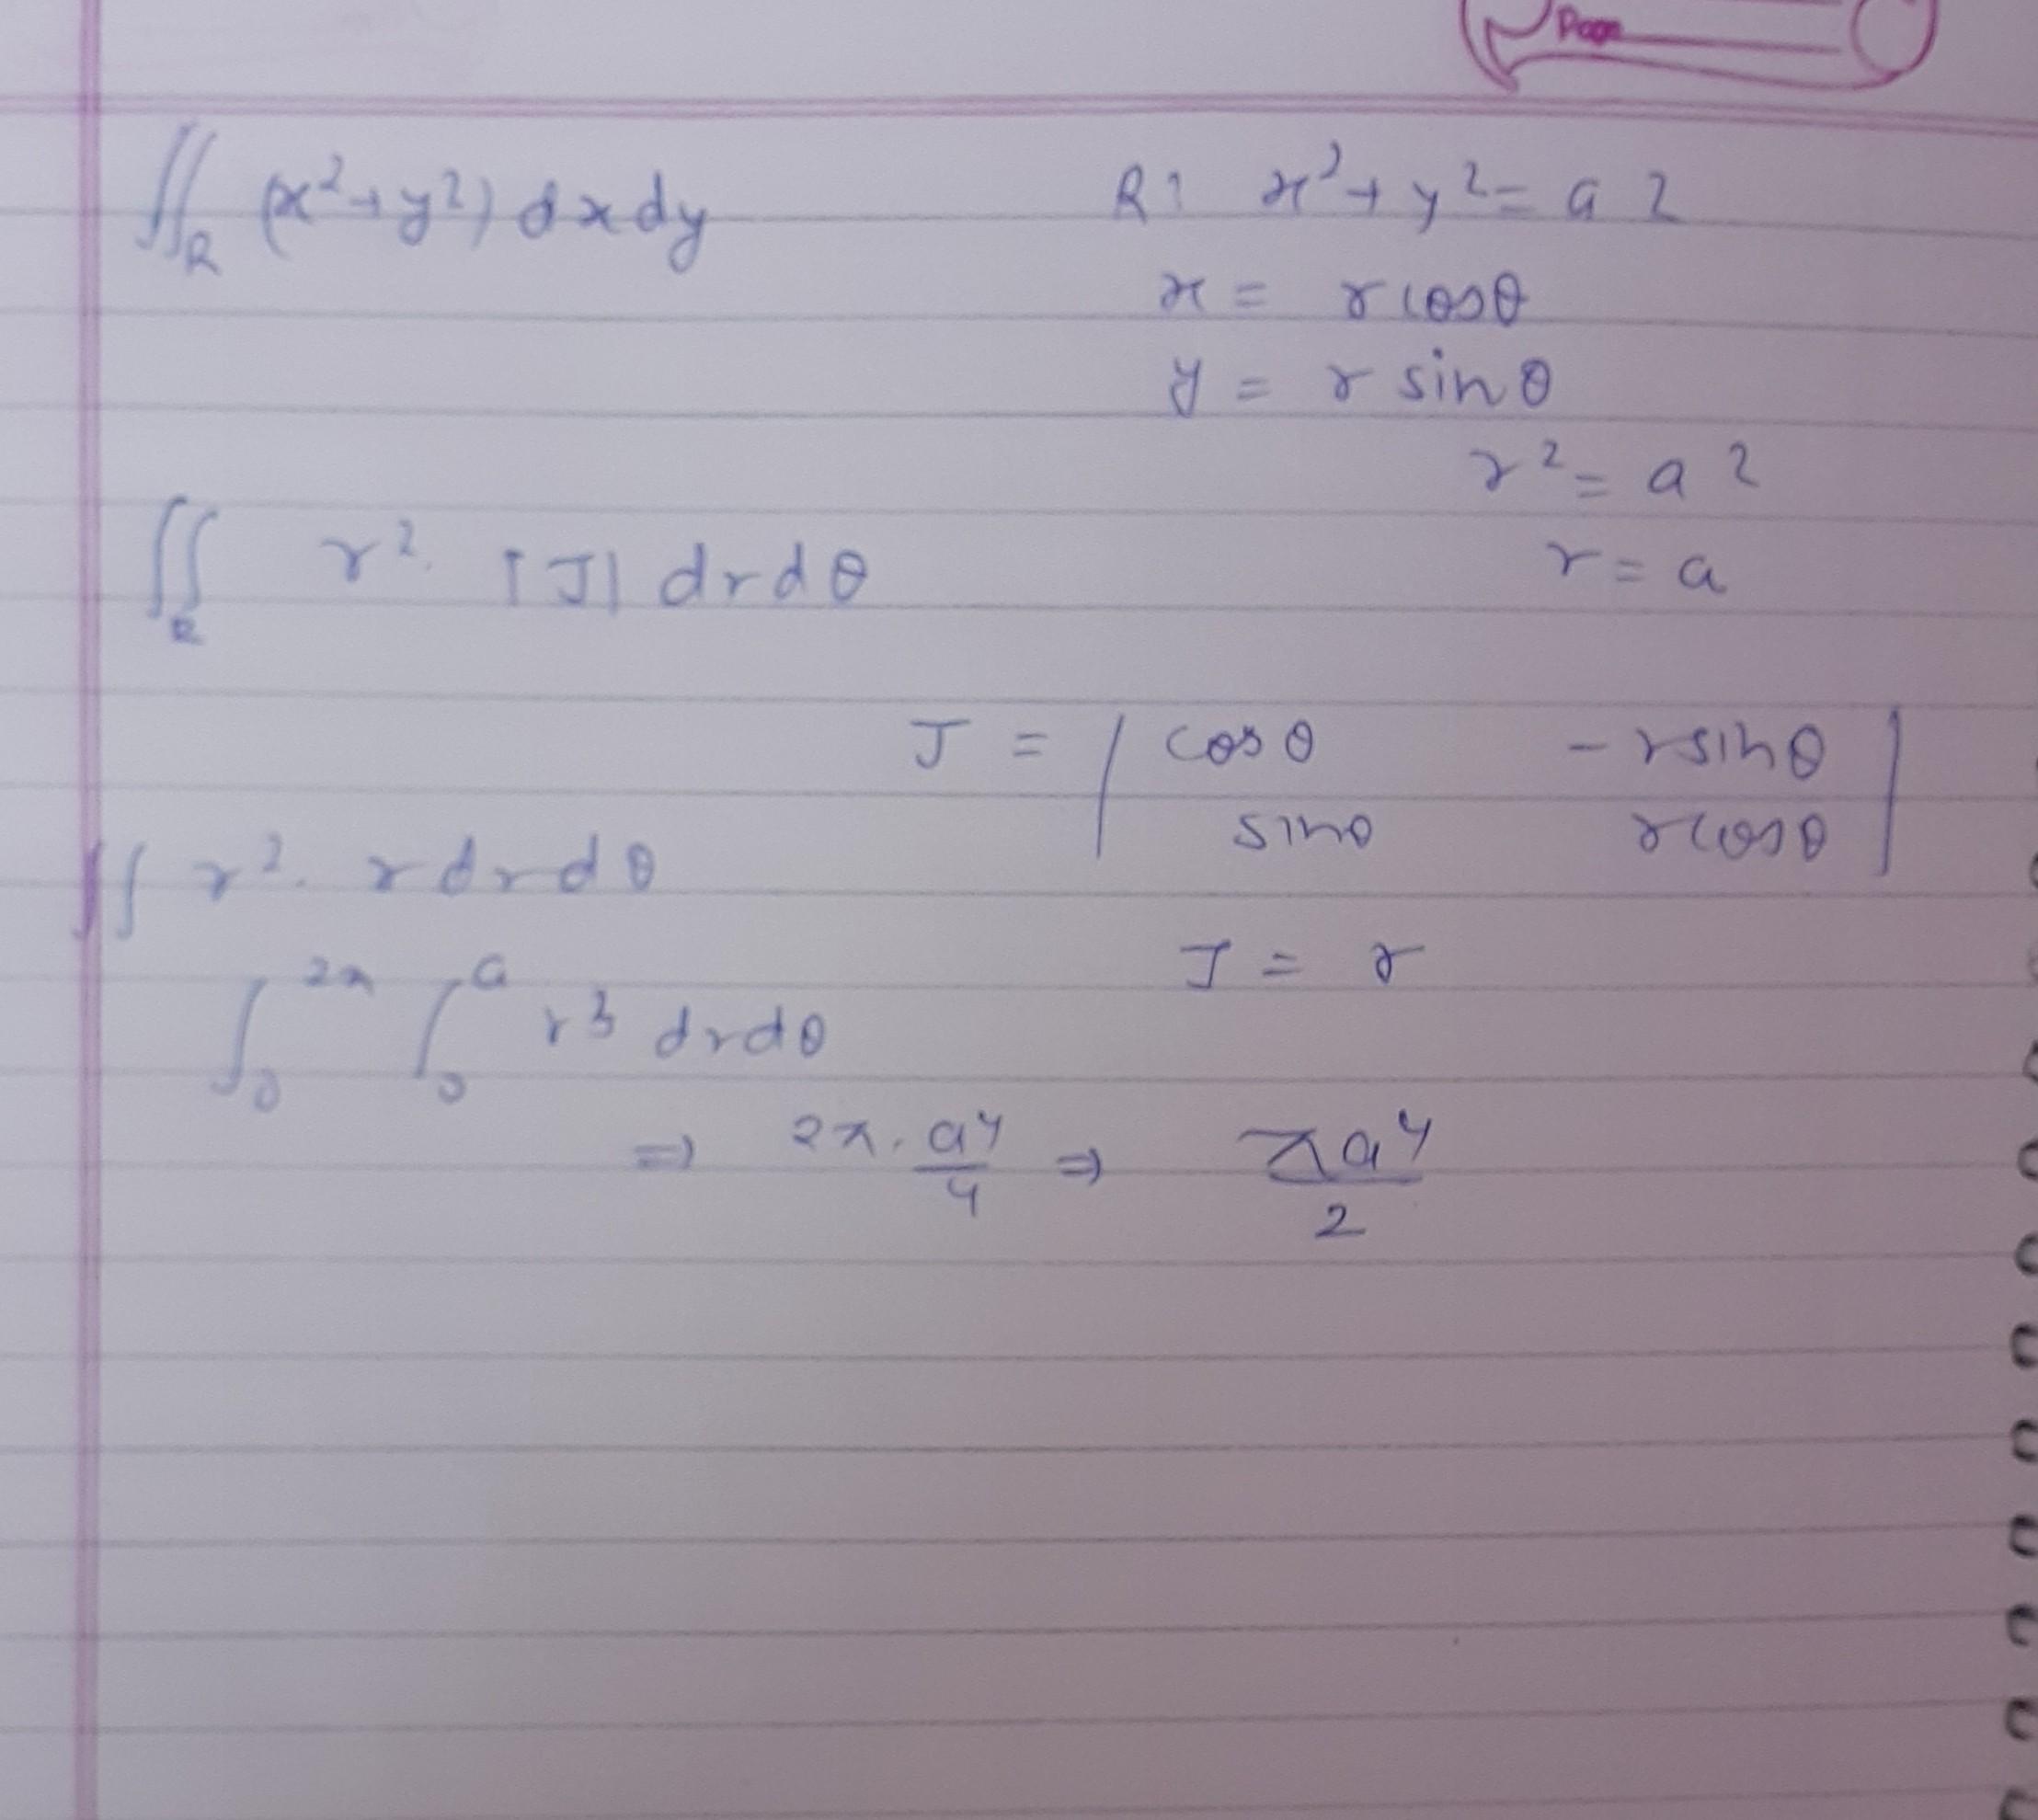 Page
∬_R (x²+y²) dxdy    R: x²+y² = a²
x = r cosθ
y = r sinθ
r² = a²
∬_R r². |J| drdθ    r = a
J = | cosθ   -rsinθ |
| sinθ   rcosθ |
∬ r². r drdθ
J = r
∫₀^2π ∫₀^a r³ drdθ
⇒ 2π. a⁴/4 ⇒ πa⁴/2